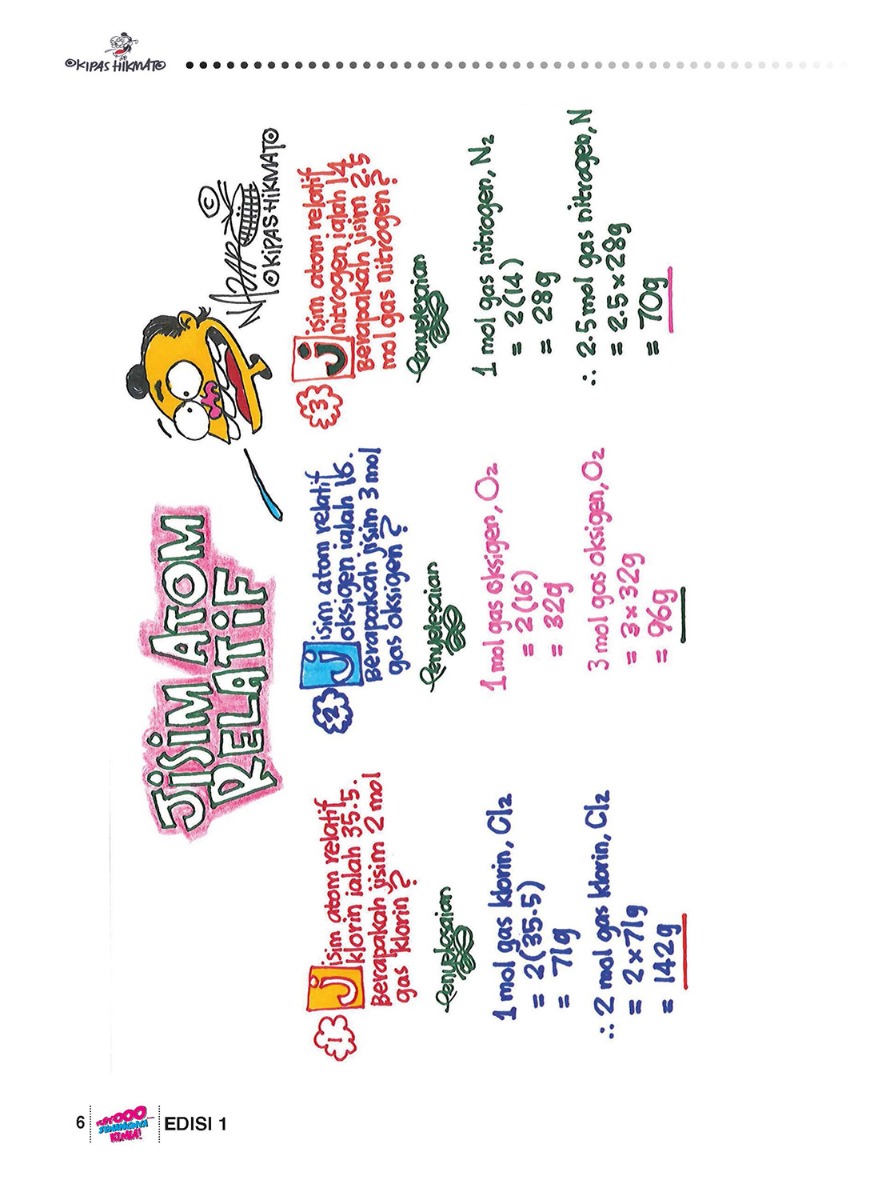 ©KIPAS HIKMAT©
JISIM ATOM
RELATIF
©
©KIPAS HIKMAT©
1
Jisim atom relatif
klorin ialah 35.5.
Berapakah jisim 2 mol
gas klorin?
Penyelesaian
1 mol gas klorin, Cl2
= 2(35.5)
= 71g
∴ 2 mol gas klorin, Cl2
= 2×71g
= 142g
2
Jisim atom relatif
oksigen ialah 16.
Berapakah jisim 3 mol
gas oksigen?
Penyelesaian
1 mol gas oksigen, O2
= 2(16)
= 32g
3 mol gas oksigen, O2
= 3 × 32g
= 96g
3
Jisim atom relatif
nitrogen ialah 14
Berapakah jisim 2.5
mol gas nitrogen?
Penyelesaian
1 mol gas nitrogen, N2
= 2(14)
= 28g
∴ 2.5 mol gas nitrogen, N
= 2.5 × 28g
= 70g
6
KIMIA!
EDISI 1